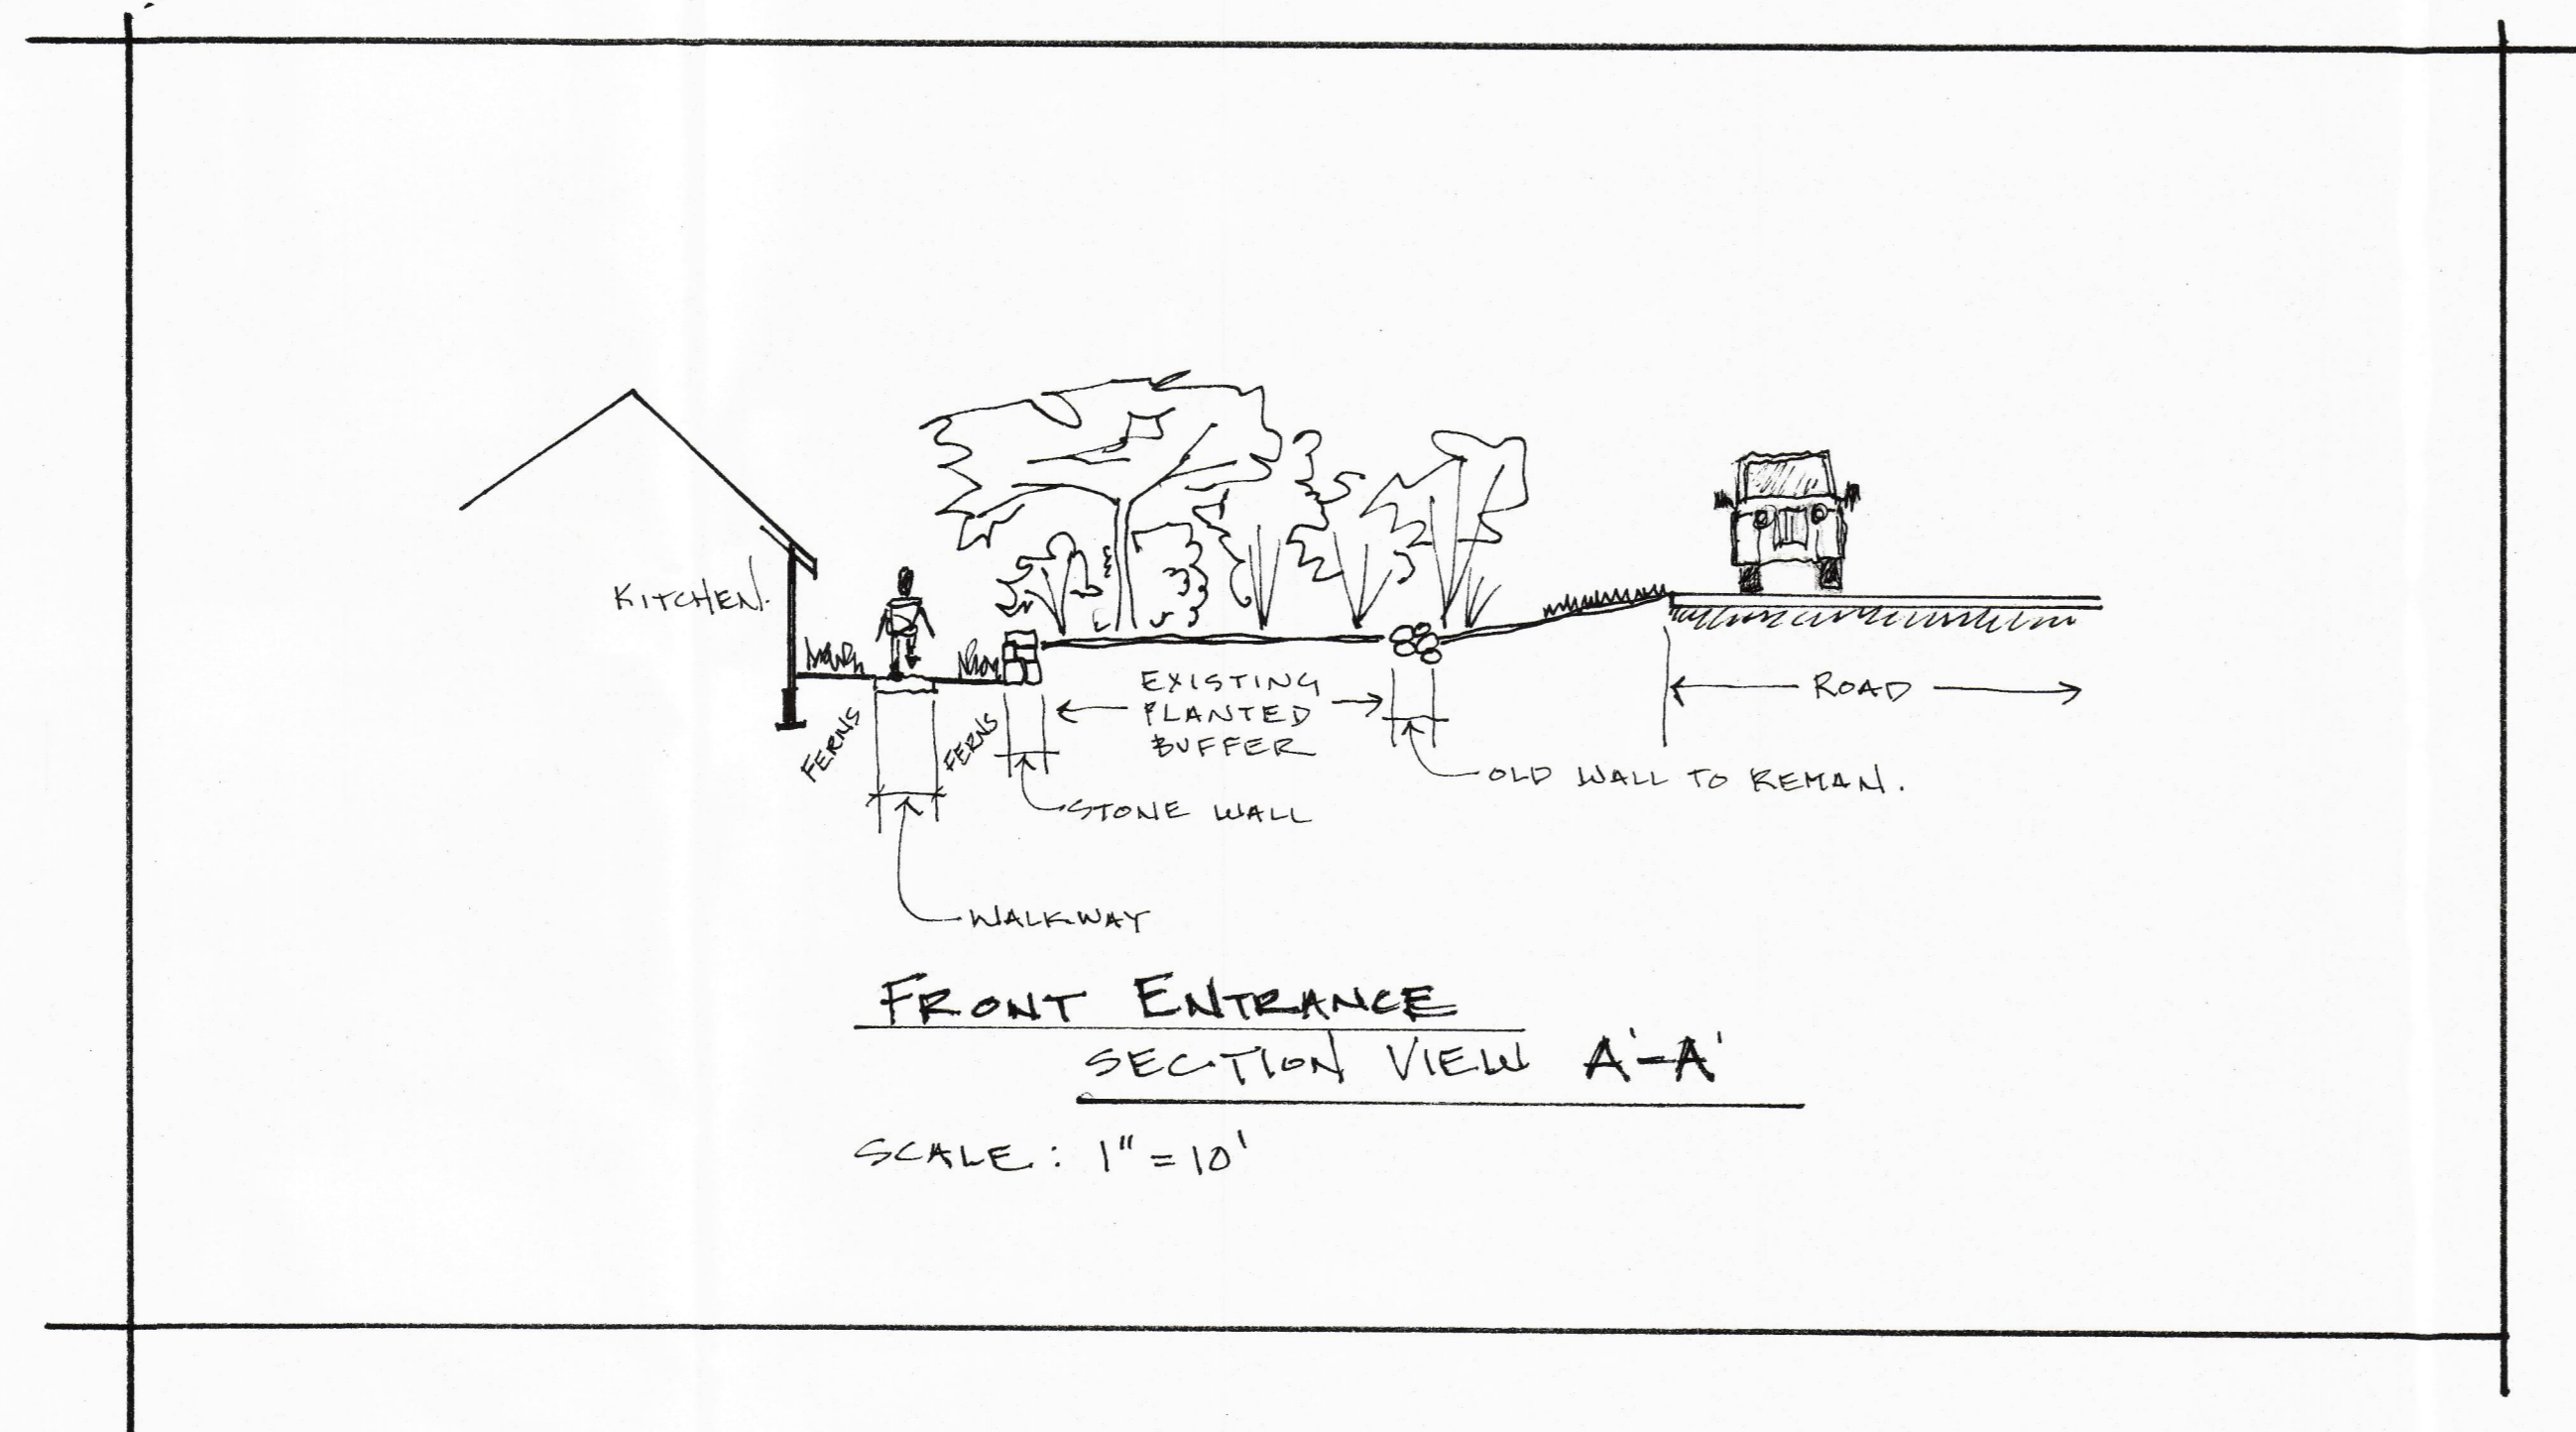 KITCHEN.
FERNS
FERNS
EXISTING
PLANTED
BUFFER
ROAD
OLD WALL TO REMAN.
STONE WALL
WALKWAY
FRONT ENTRANCE
SECTION VIEW A'-A'
SCALE: 1" = 10'